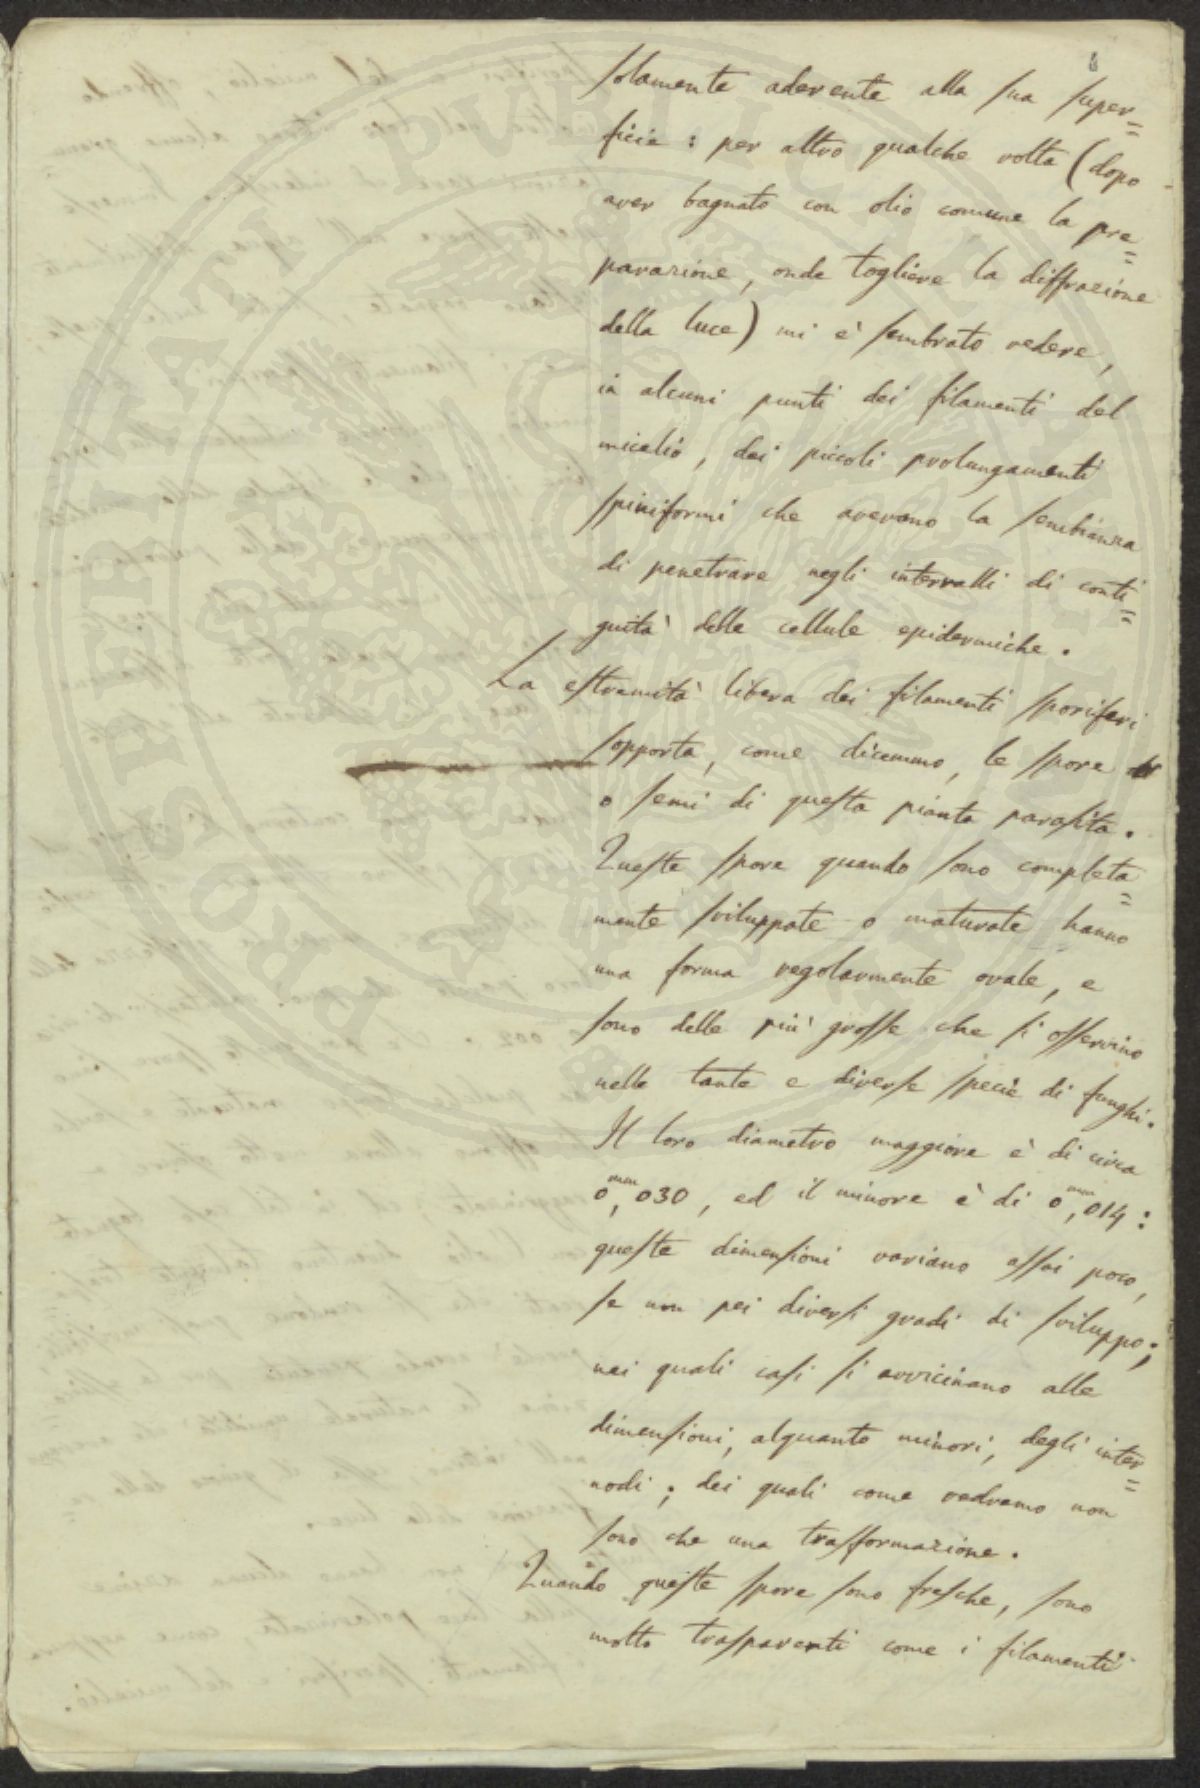 8
solamente aderente alla sua super=
ficie : per altro qualche volta (dopo
aver bagnato con olio comune la pre=
parazione, onde togliere la diffrazione
della luce) mi è sembrato vedere,
in alcuni punti dei filamenti del
micelio, dei piccoli prolungamenti
spiniformi che avevano la sembianza
di penetrare negli intervalli di conti=
guità delle cellule epidermiche.
La estremità libera dei filamenti sporiferi
sopporta, come dicemmo, le spore
o semi di questa pianta parasita.
Queste spore quando sono completa=
mente sviluppate o maturate hanno
una forma regolarmente ovale, e
sono delle più grosse che si osservino
nelle tante e diverse specie di funghi.
Il loro diametro maggiore è di circa
0,mm030, ed il minore è di 0,mm014 :
queste dimensioni variano assai poco,
se non pei diversi gradi di sviluppo;
nei quali casi si avvicinano alle
dimensioni, alquanto minori, degli inter=
nodi; dei quali come vedremo non
sono che una trasformazione.
Quando queste spore sono fresche, sono
molto trasparenti come i filamenti